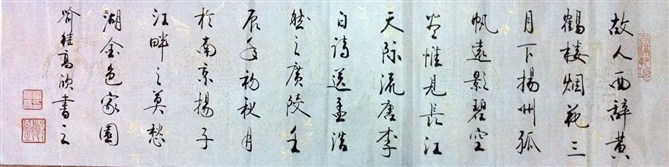 故人西辞黄
鶴楼烟花三
月下揚州孤
帆遠影碧空
尽惟見長江
天际流唐李
白詩送孟浩
然之廣陵壬
辰年初秋月
於南京揚子
江畔之莫愁
湖金色家園
喻继高欣書之